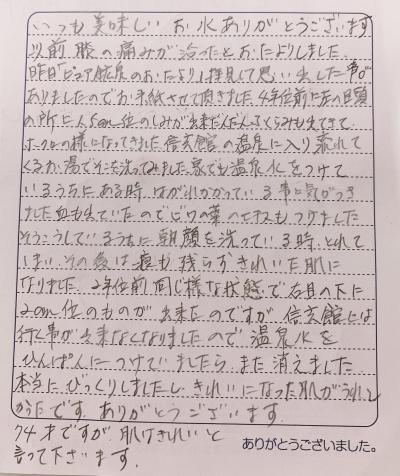 いつも美味しいお水ありがとうございます
以前膝の痛みが治ったとおたよりしました
昨日「ピュアの銀泉のおたより」拝見して思い出した事が
ありましたのでお手紙させて頂きました。4年位前に左の目頭
の所に1.5cm位のしみが出来だんだんふくらみも出てきて
の様になってきました信玄館の温泉に入り流れて
くるお湯でそこを洗ってみました。家でも温泉水をつけて
いるうちにある時、はがれかかっている事に気がつき
ました血も出ていたのでビワの葉のエキスもつけました
そうこうしているうちに朝顔を洗っている時、とれて
しまい、その後は痕も残らずきれいな肌に
なりました。2年位前同じ様な状態で右目の下に
2cm位のものが出来たのですが信玄館には
行く事が出来なくなりましたので、温泉水を
ひんぱんにつけていましたら、また消えました
本当にびっくりしましたし、きれいになった肌がうれし
かったです。ありがとうございます。
74才ですが、肌はきれいと
言って下さいます。
ありがとうございました。